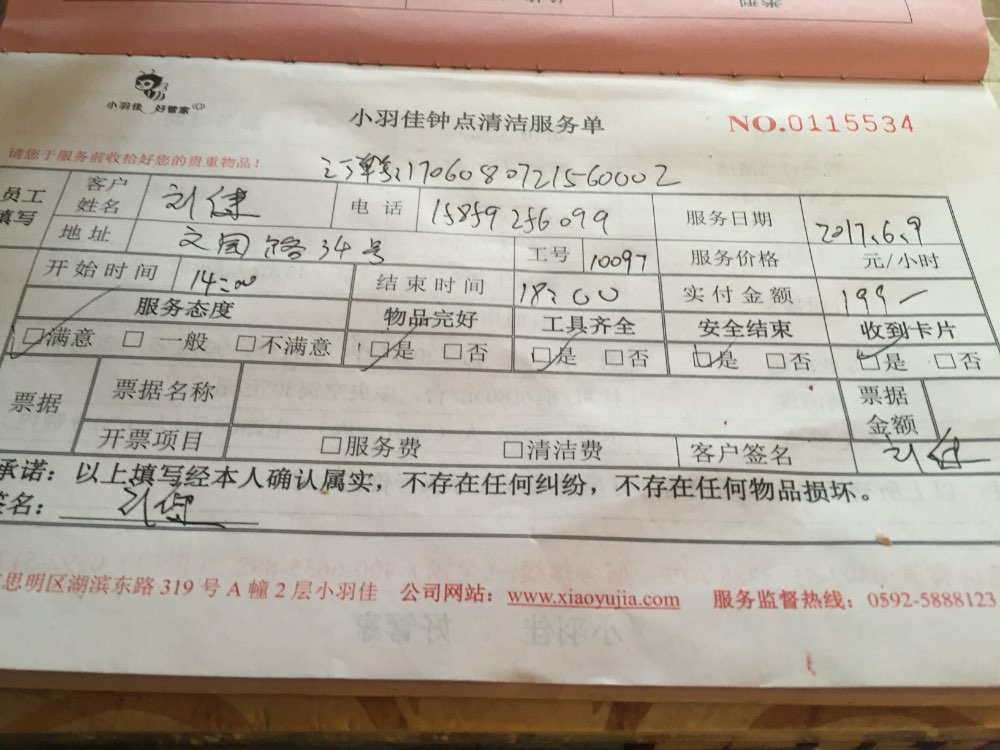 小羽佳 好管家
小羽佳钟点清洁服务单
NO.0115534
请您于服务前收拾好您的贵重物品!
订单号:1706080721560002
员工填写 客户姓名 刘健 电话 15859256099 服务日期 2017.6.9
地址 文园路34号 工号 10097 服务价格 元/小时
开始时间 14:00 结束时间 18:00 实付金额 199一
服务态度 物品完好 工具齐全 安全结束 收到卡片
☑满意 □一般 □不满意 ☑是 □否 ☑是 □否 ☑是 □否 ☑是 □否
票据 票据名称 票据金额
开票项目 □服务费 □清洁费 客户签名 刘健
承诺:以上填写经本人确认属实,不存在任何纠纷,不存在任何物品损坏。
签名: 刘健
思明区湖滨东路 319 号 A 幢 2 层小羽佳 公司网站:www.xiaoyujia.com 服务监督热线:0592-5888123